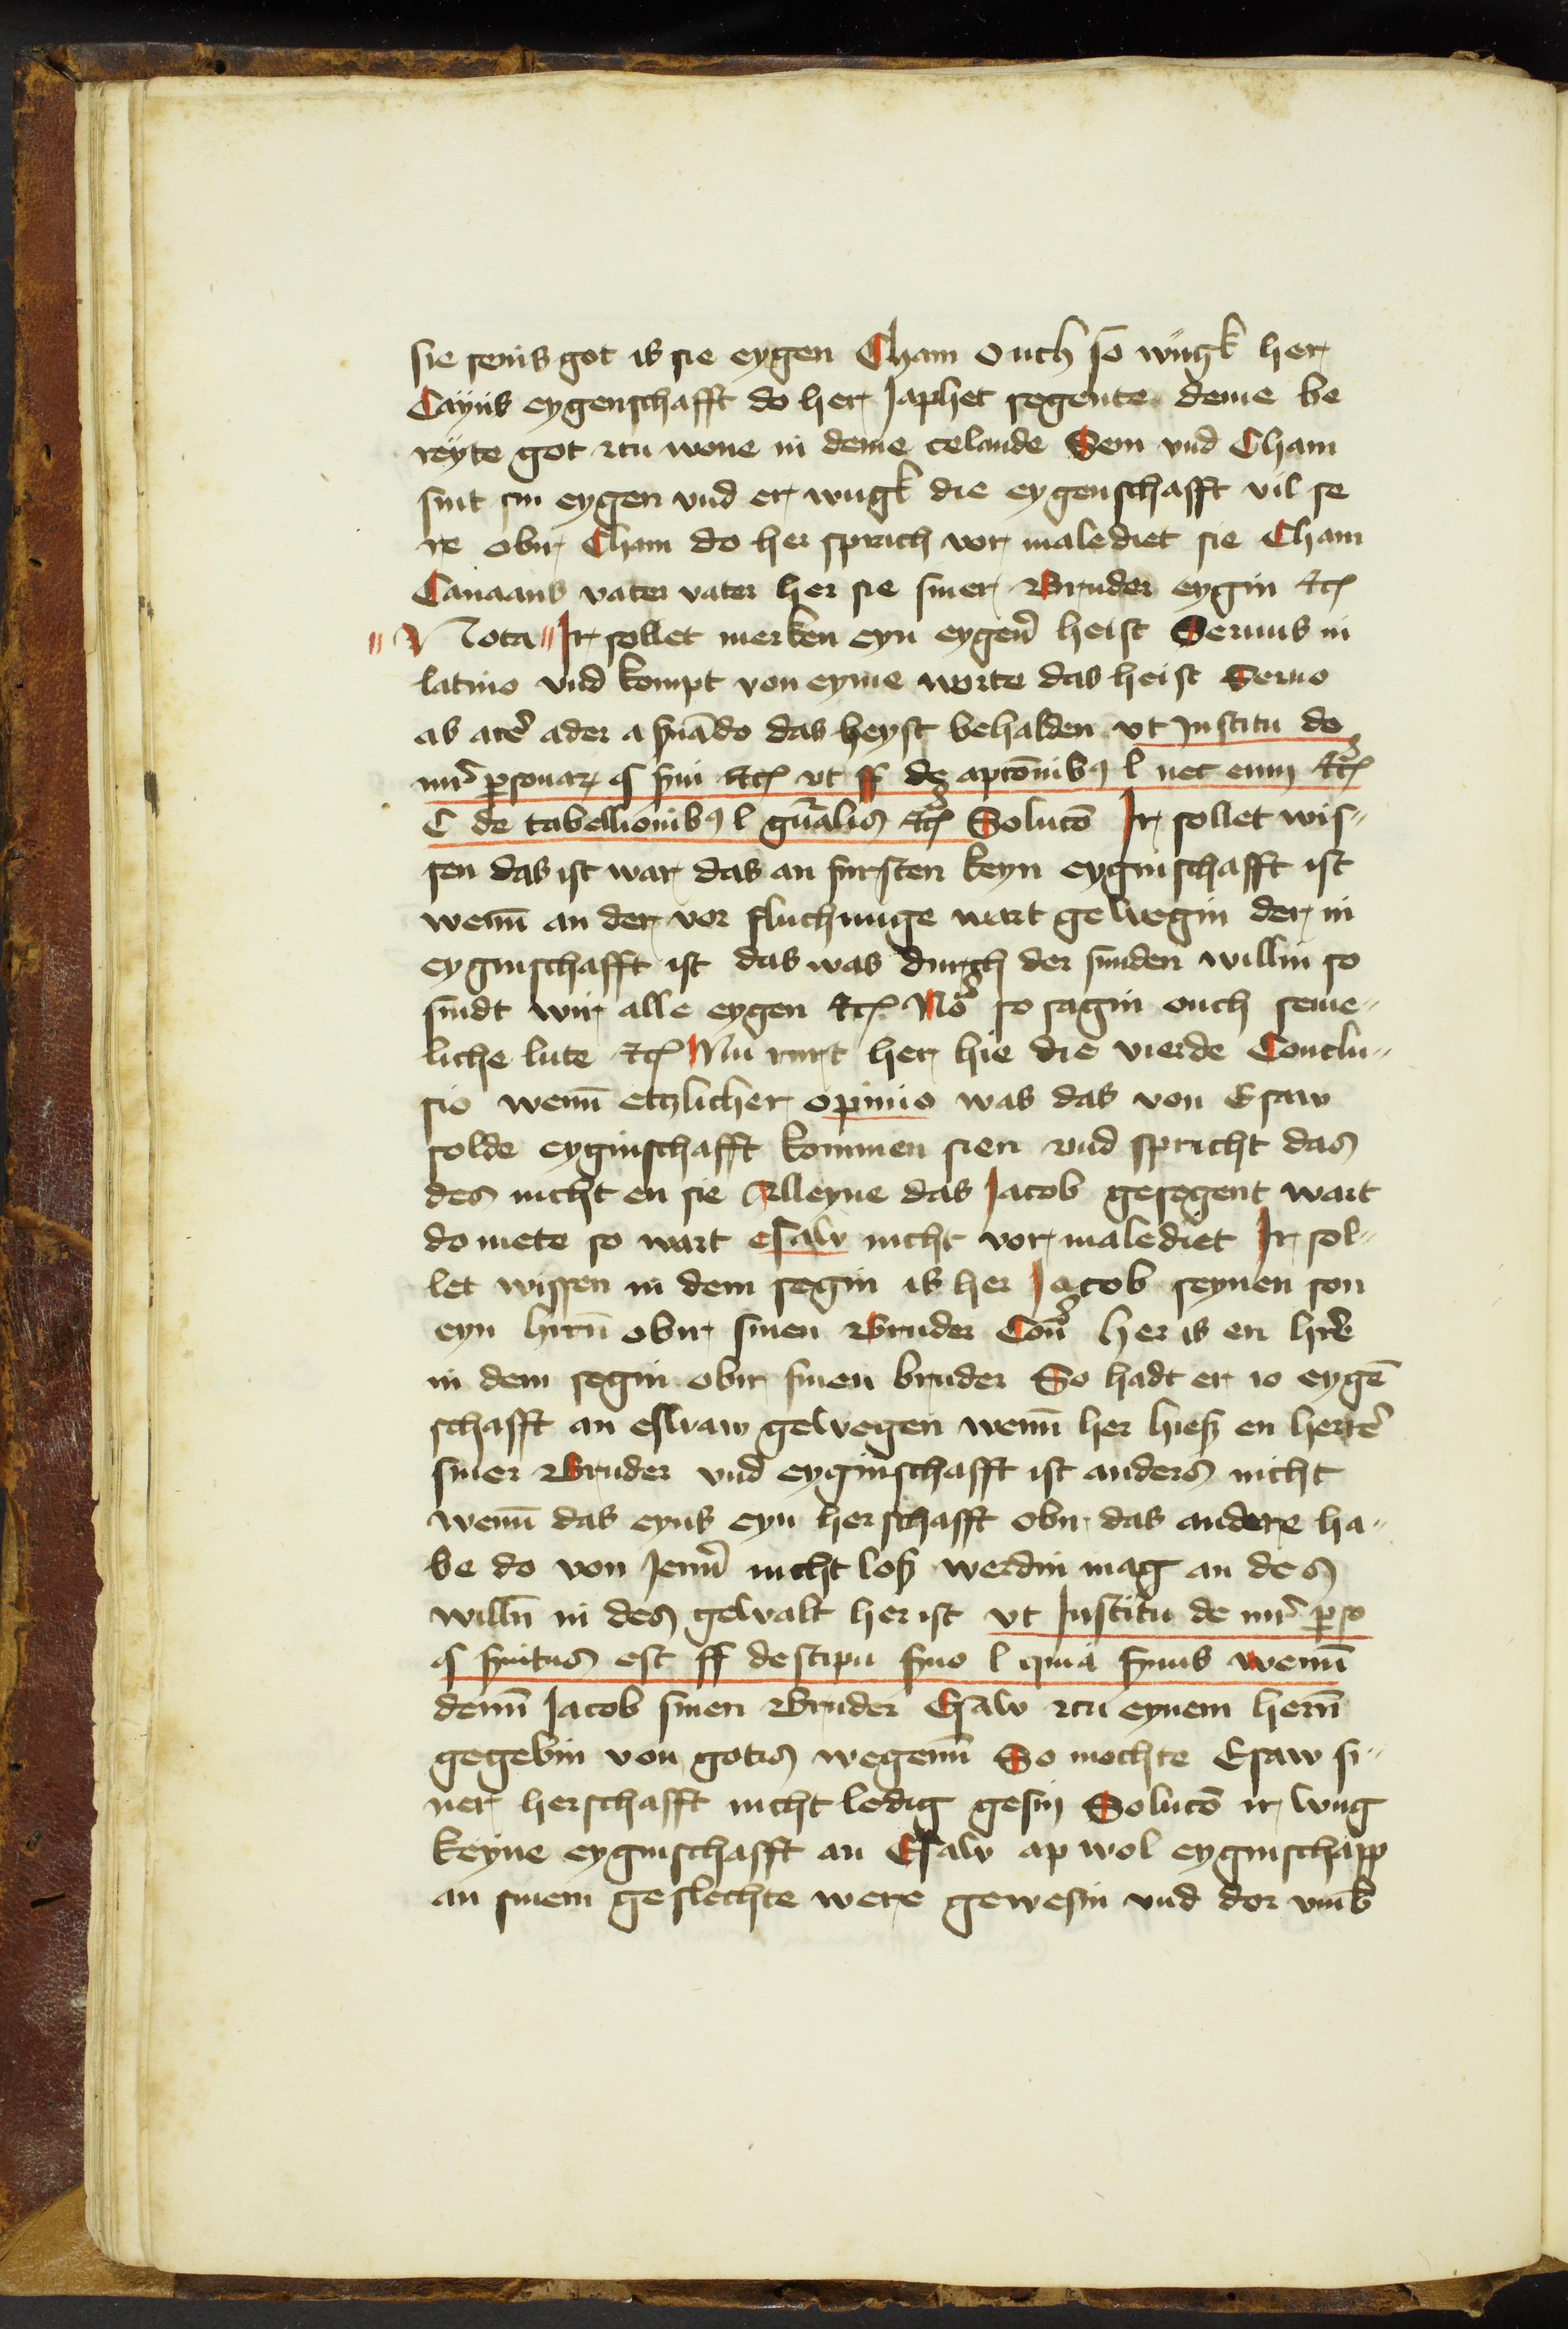 sie senis got is sie eygen Cham Ouch so wugk her
Cayns eygenschafft do her Japhet segente deme be
reyte got zcu wone in deme celande Sem vnd Cham
sint sin eygen vnd er wugk die eygenschafft vil se
re obir Cham do her sprich vor maledict sie Cham
Canaans vater vater her sie siner Bruder eygin etc
Nota Ir sollet merken eyn eygen heist Seruus in
latino vnd kompt von eyme worte das heist Seruo
as are ader a suando das heyst behalden vt Institu de
iur personar § serui etc vt ff de apconibus l nec enim etc
C de tabellionibus l gnralis etc Soluco Ir sollet wis"
sen das ist war das an fursten keyn eyginschafft ist
wenn an der vor fluchunge wart gewegin der in
eyginschafft ist das was durch der sunden willin so
sindt wir alle eygen etc No so sagin ouch seme"
liche lute etc Nu rurt her hie die vierde Conclu"
sio wenn etzlicher opinio was das von Esaw
solde eyginschafft kommen sien vnd spricht das
des nicht en sie Alleyne das Jacob gesegent wart
do mete so wart esaw nicht vor maledict Ir sol"
let wissen in dem segin is her Jacob seynen son
eyn hirn obir sinen Bruder Con her is en hre
in dem segin obir sinen bruder So hadt er io eygē
schafft an eswaw gewegen wenn her hieß en herre
siner Bruder vnd eyginschafft ist anders nicht
wenn das eyns eyn herschafft obir das andere ha"
be do von Jenir nicht loß werdin mag an des
willn in des gewalt her ist vt Institu de iur pso
§ suitus est ff de stipu suo l quia suus wenn
denn Jacob sinen Bruder Esaw zcu eynem hern
gegebin von gotis wegenn So mochte Esaw si"
ner herschafft nicht ledig gesin Soluco ir wug
keyne eyginschafft an Esaw ap wol eyginschapp
an sinem geslechte were gewesin vnd dor vmb